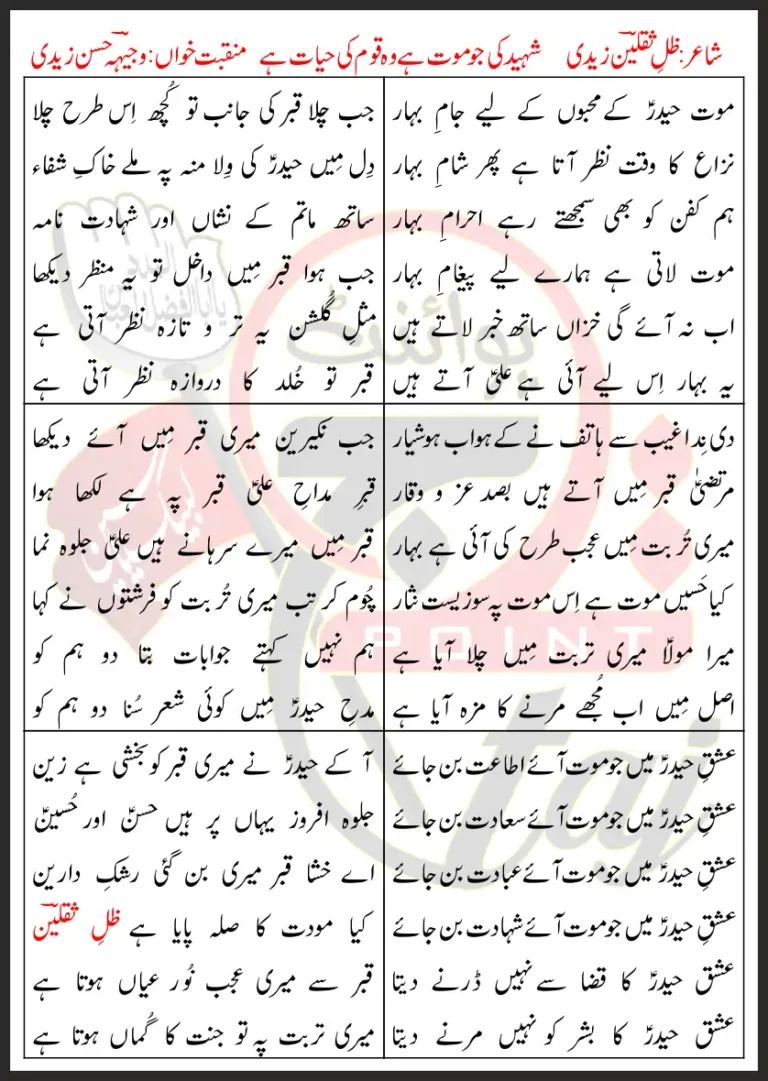 شاعر: ظلِ ثقلینؔ زیدی شہید کی جو موت ہے وہ قوم کی حیات ہے منقبت خواں: وجیہہ حسن زیدی
موت حیدرؑ کے محبوں کے لیے جامِ بہار
نزاع کا وقت نظر آتا ہے پھر شامِ بہار
ہم کفن کو بھی سمجھتے رہے احرامِ بہار
موت لاتی ہے ہمارے لیے پیغامِ بہار
اب نہ آئے گی خزاں ساتھ خبر لاتے ہیں
یہ بہار اِس لیے آئی ہے علیؑ آتے ہیں
جب چلا قبر کی جانب تو کُچھ اِس طرح چلا
دِل مِیں حیدرؑ کی وِلا منہ پہ ملے خاکِ شفاء
ساتھ ماتم کے نشاں اور شہادت نامہ
جب ہوا قبر مِیں داخل تو یہ منظر دیکھا
مثلِ گُلشن یہ تر و تازہ نظر آتی ہے
قبر تو خُلد کا دروازہ نظر آتی ہے
دی نِدا غیب سے ہاتف نے کے ہو اب ہوشیار
مرتضیٰؑ قبر مِیں آتے ہیں بصد عز و وقار
میری تُربت مِیں عجب طرح کی آئی ہے بہار
کیا حَسِیں موت ہے اِس موت پہ سو زیست نثار
میرا مولاؑ میری تربت مِیں چلا آیا ہے
اصل مِیں اب مُجھے مرنے کا مزہ آیا ہے
جب نکیرین میری قبر مِیں آئے دیکھا
قبرِ مداحِ علیؑ قبر پہ ہے لکھا ہوا
قبر مِیں میرے سرہانے ہیں علیؑ جلوہ نما
چُوم کر تب میری تُربت کو فرشتوں نے کہا
ہم نہیں کہتے جوابات بتا دو ہم کو
مدحِ حیدرؑ مِیں کوئی شعر سُنا دو ہم کو
عشقِ حیدرؑ میں جو موت آئے اطاعت بن جائے
عشقِ حیدرؑ میں جو موت آئے سعادت بن جائے
عشقِ حیدرؑ میں جو موت آئے عبادت بن جائے
عشقِ حیدرؑ میں جو موت آئے شہادت بن جائے
عشق حیدرؑ کا قضا سے نہیں ڈرنے دیتا
عشق حیدرؑ کا بشر کو نہیں مرنے دیتا
آ کے حیدرؑ نے میری قبر کو بخشی ہے زین
جلوہ افروز یہاں پر ہیں حسنؑ اور حُسینؑ
اے خشا قبر میری بن گئی رشکِ دارین
کیا مودت کا صلہ پایا ہے ظلِ ثقلینؔ
قبر سے میری عجب نُور عیاں ہوتا ہے
میری تربت پہ تو جنت کا گُماں ہوتا ہے
پوائنٹ
POINT
taj